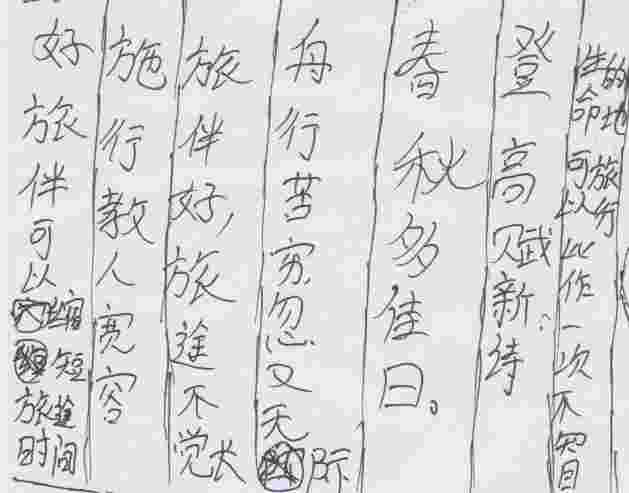 好旅伴可以缩短旅途时间
施行教人宽容
旅伴好,旅途不觉长
舟行苦穷忽又无际
春秋多佳日。
登高赋新诗
生命可以比作一次不知目
的地旅行